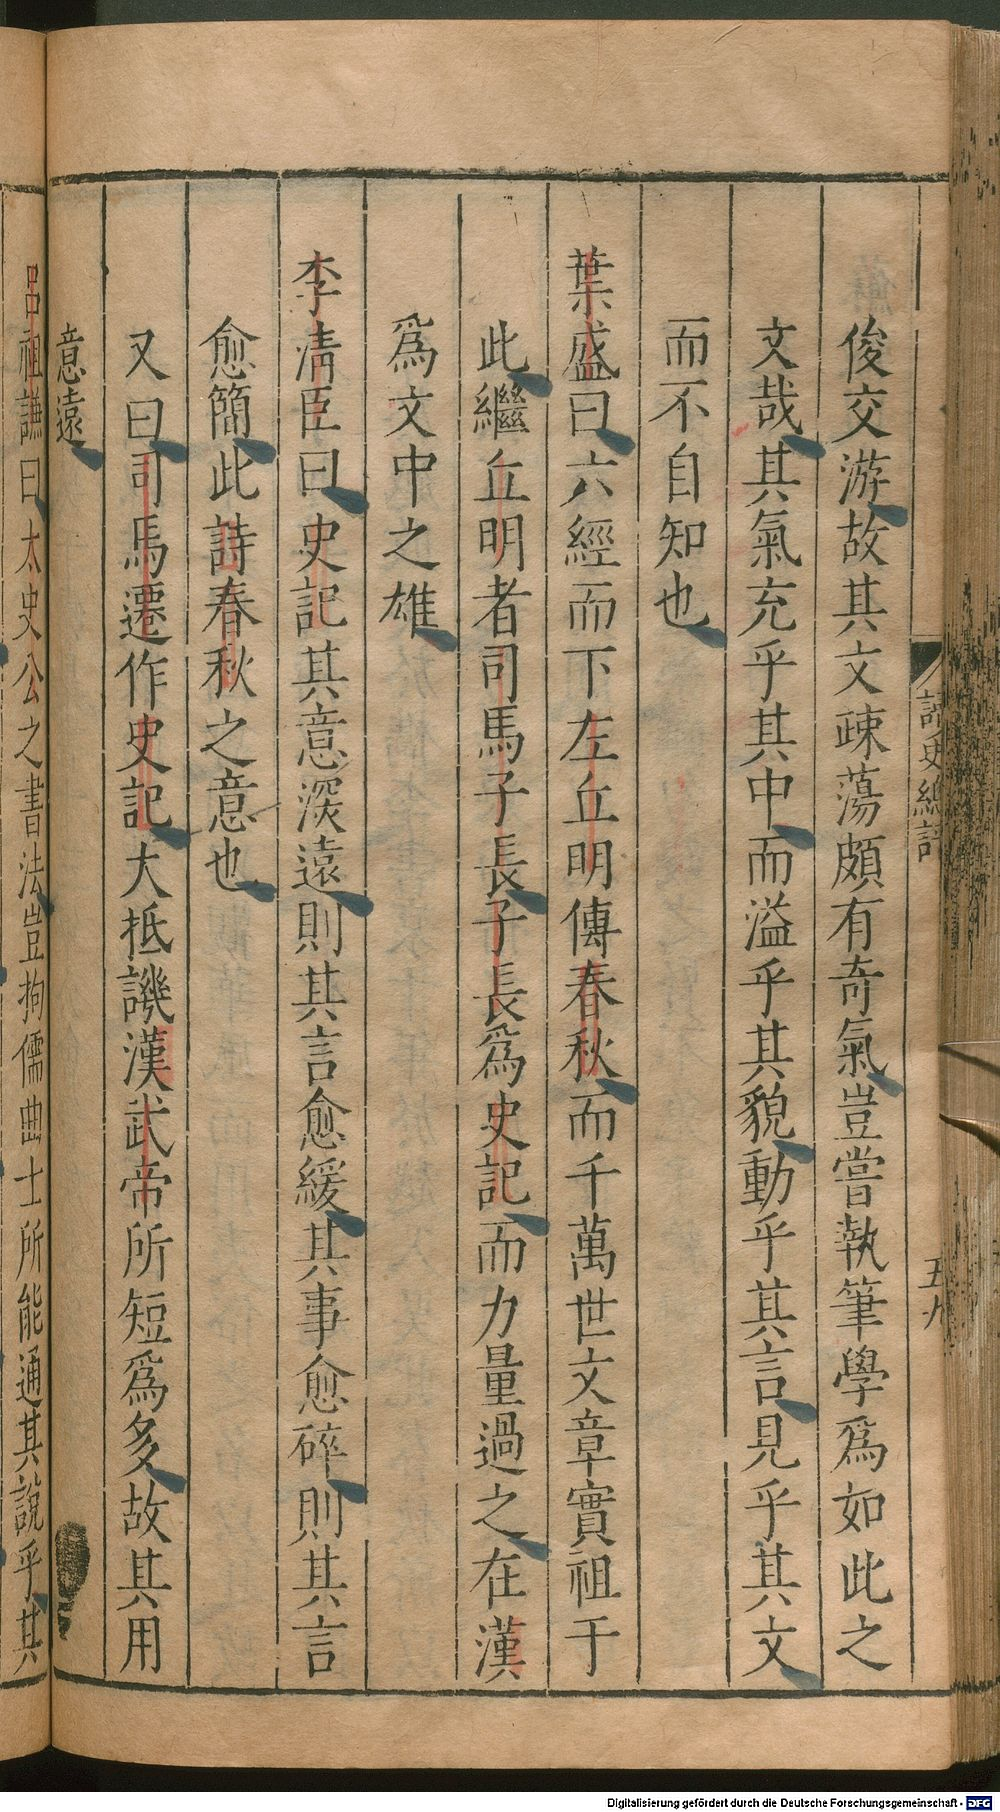 讀史總評
五九
俊交游故其文疎蕩頗有奇氣豈嘗執筆學爲如此之
文哉其氣充乎其中而溢乎其貌動乎其言見乎其文
而不自知也
葉盛曰六經而下左丘明傳春秋而千萬世文章實祖于
此繼丘明者司馬子長子長爲史記而力量過之在漢
爲文中之雄
李淸臣曰史記其意深遠則其言愈緩其事愈碎則其言
愈簡此詩春秋之意也
又曰司馬遷作史記大抵譏漢武帝所短爲多故其用
意遠
呂祖謙曰太史公之書法豈拘儒曲士所能通其說乎其
Digitalisierung gefördert durch die Deutsche Forschungsgemeinschaft - DFG